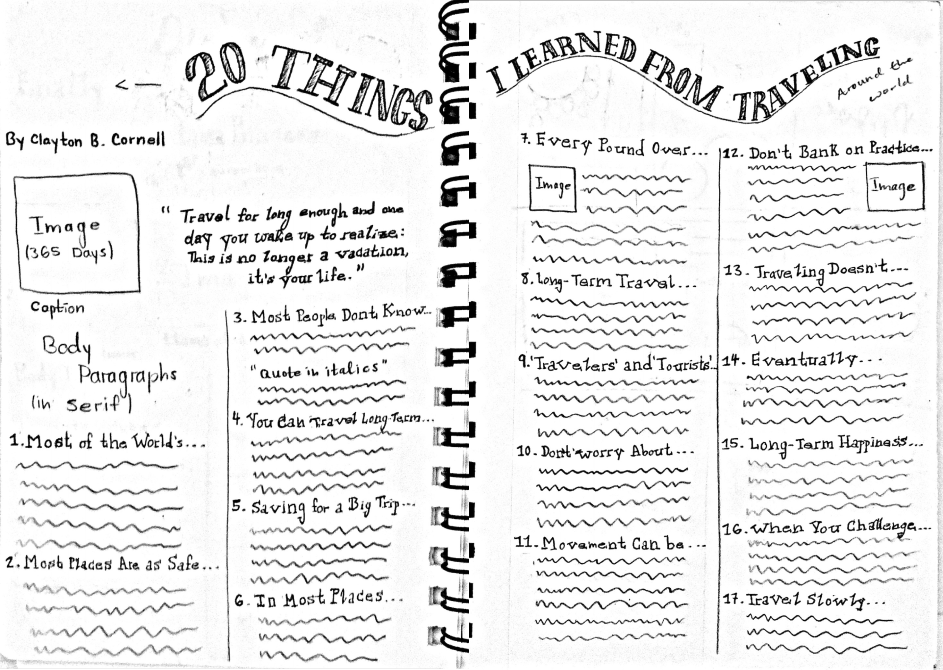 20 THINGS
I LEARNED FROM TRAVELING
Around the
world
By Clayton B. Cornell
Image
(365 Days)
Caption
Body
Paragraphs
(in Serif)
" Travel for long enough and one
day you wake up to realize:
This is no longer a vacation,
it's your life."
1. Most of the World's...
2. Most Places Are as Safe...
3. Most People Dont Know...
"Quote in italics"
4. You Can Travel Long-Term...
5. Saving for a Big Trip...
6. In Most Places...
7. Every Pound Over...
Image
8. Long-Term Travel...
9. 'Travelers' and 'Tourists'...
10. Dont' worry About...
11. Movement Can be...
12. Don't Bank on Practice...
Image
13. Traveling Doesn't...
14. Eventually...
15. Long-Term Happiness...
16. When You Challenge...
17. Travel Slowly...